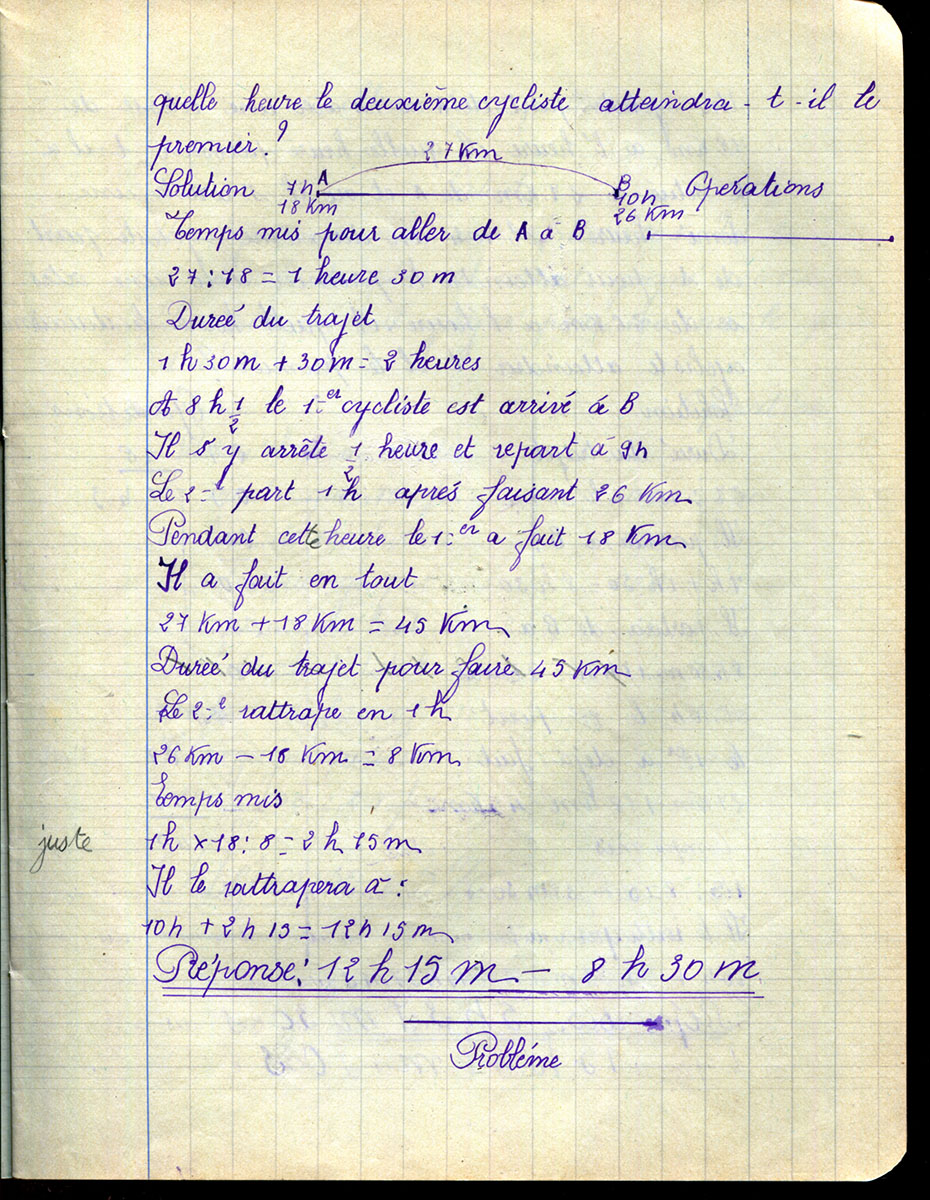 quelle heure le deuxième cycliste atteindra-t-il le
premier?
27 Km
Solution 7h A B Opérations
18 Km 10h
26 Km
Temps mis pour aller de A à B
27 : 18 = 1 heure 30 m
Dureé du trajet
1 h 30 m + 30 m = 2 heures
A 8 h 1/2 le 1er cycliste est arrivé à B
Il s'y arrête 1/2 heure et repart à 9h
Le 2e part 1h aprés faisant 26 Km
Pendant cette heure le 1er a fait 18 Km
Il a fait en tout
27 Km + 18 Km = 45 Km
Dureé du trajet pour faire 45 Km
Le 2e rattrape en 1 h
26 Km - 18 Km = 8 Km
Temps mis
juste
1h x 18 : 8 = 2 h 15 m
Il le rattrapera à :
10h + 2h 15 = 12h 15 m
Réponse: 12 h 15 m - 8 h 30 m
Probléme